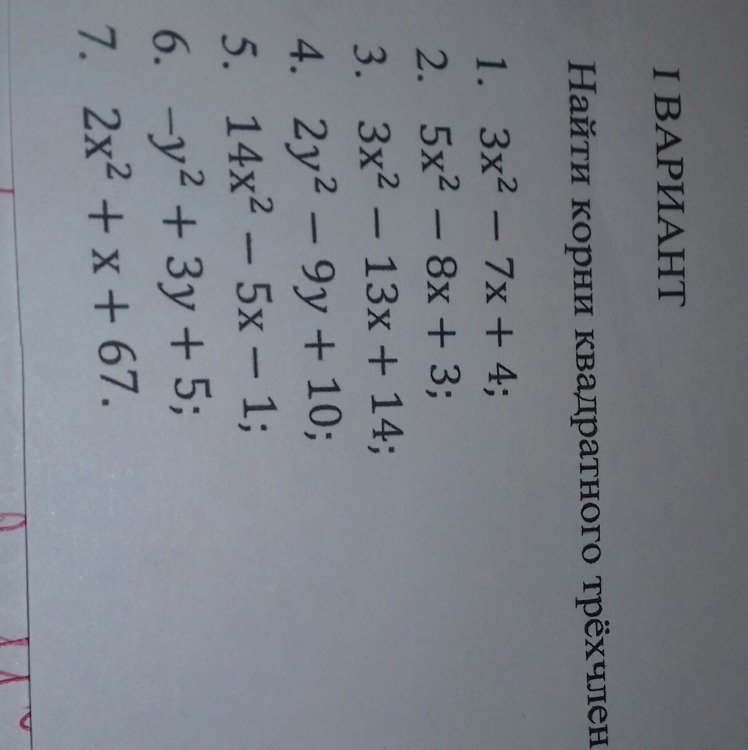 I ВАРИАНТ
Найти корни квадратного трёхчлен
1. 3x² − 7x + 4;
2. 5x² − 8x + 3;
3. 3x² − 13x + 14;
4. 2y² − 9y + 10;
5. 14x² − 5x − 1;
6. −y² + 3y + 5;
7. 2x² + x + 67.